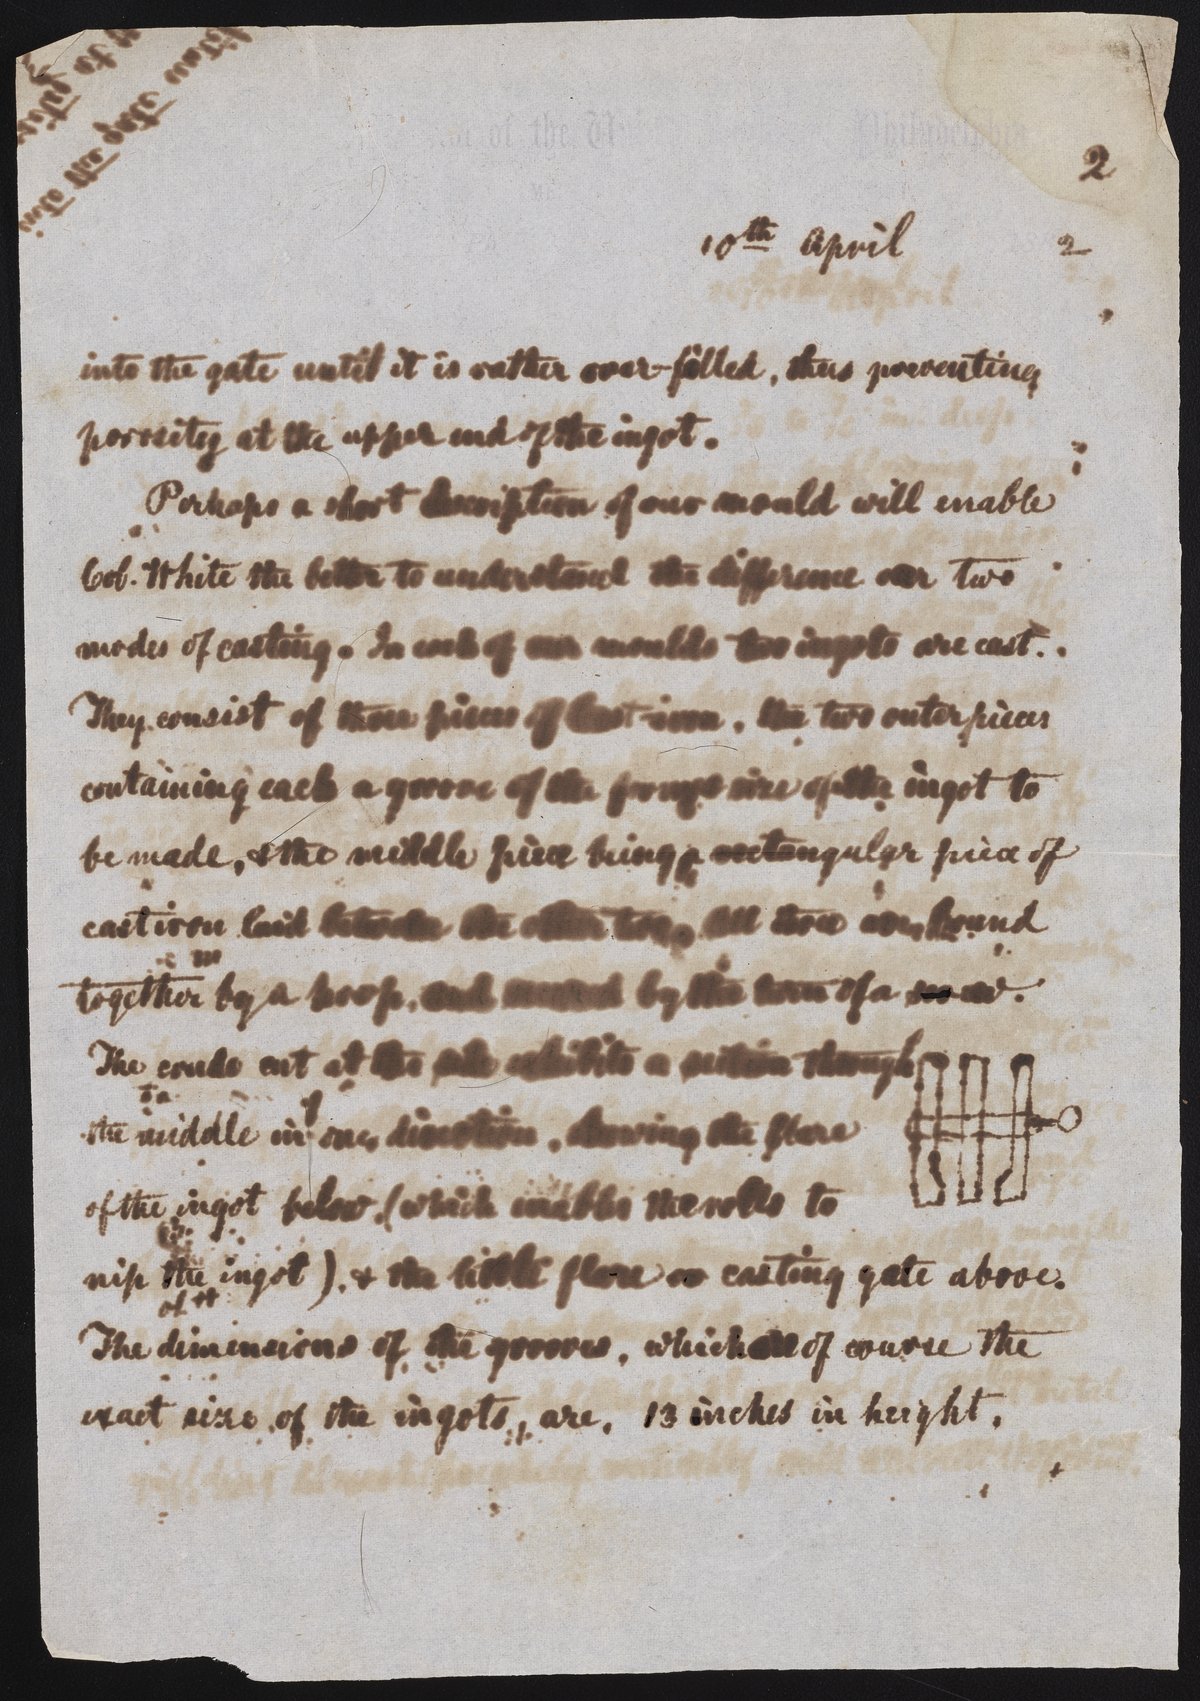 2
10th April 2
into the gate until it is rather over-filled, thus preventing
porosity at the upper end of the ingot.
Perhaps a short description of our mould will enable
Col. White the better to understand the difference our two
modes of casting. In each of our moulds two ingots are cast.
They consist of three pieces of Cast-iron, the two outer pieces
containing each a groove of the form & size of the ingot to
be made, & the middle piece being a rectangular piece of
cast iron laid between the other two. All three are bound
together by a hoop, and secured by the turn of a screw.
The crude cut at the side exhibits a section through
the middle in one direction, showing the flare
of the ingot below, (which enables the rolls to
nip the ingot), & the little flare or casting gate above.
The dimensions of the grooves, which are of course the
exact size of the ingots, are, 13 inches in height,